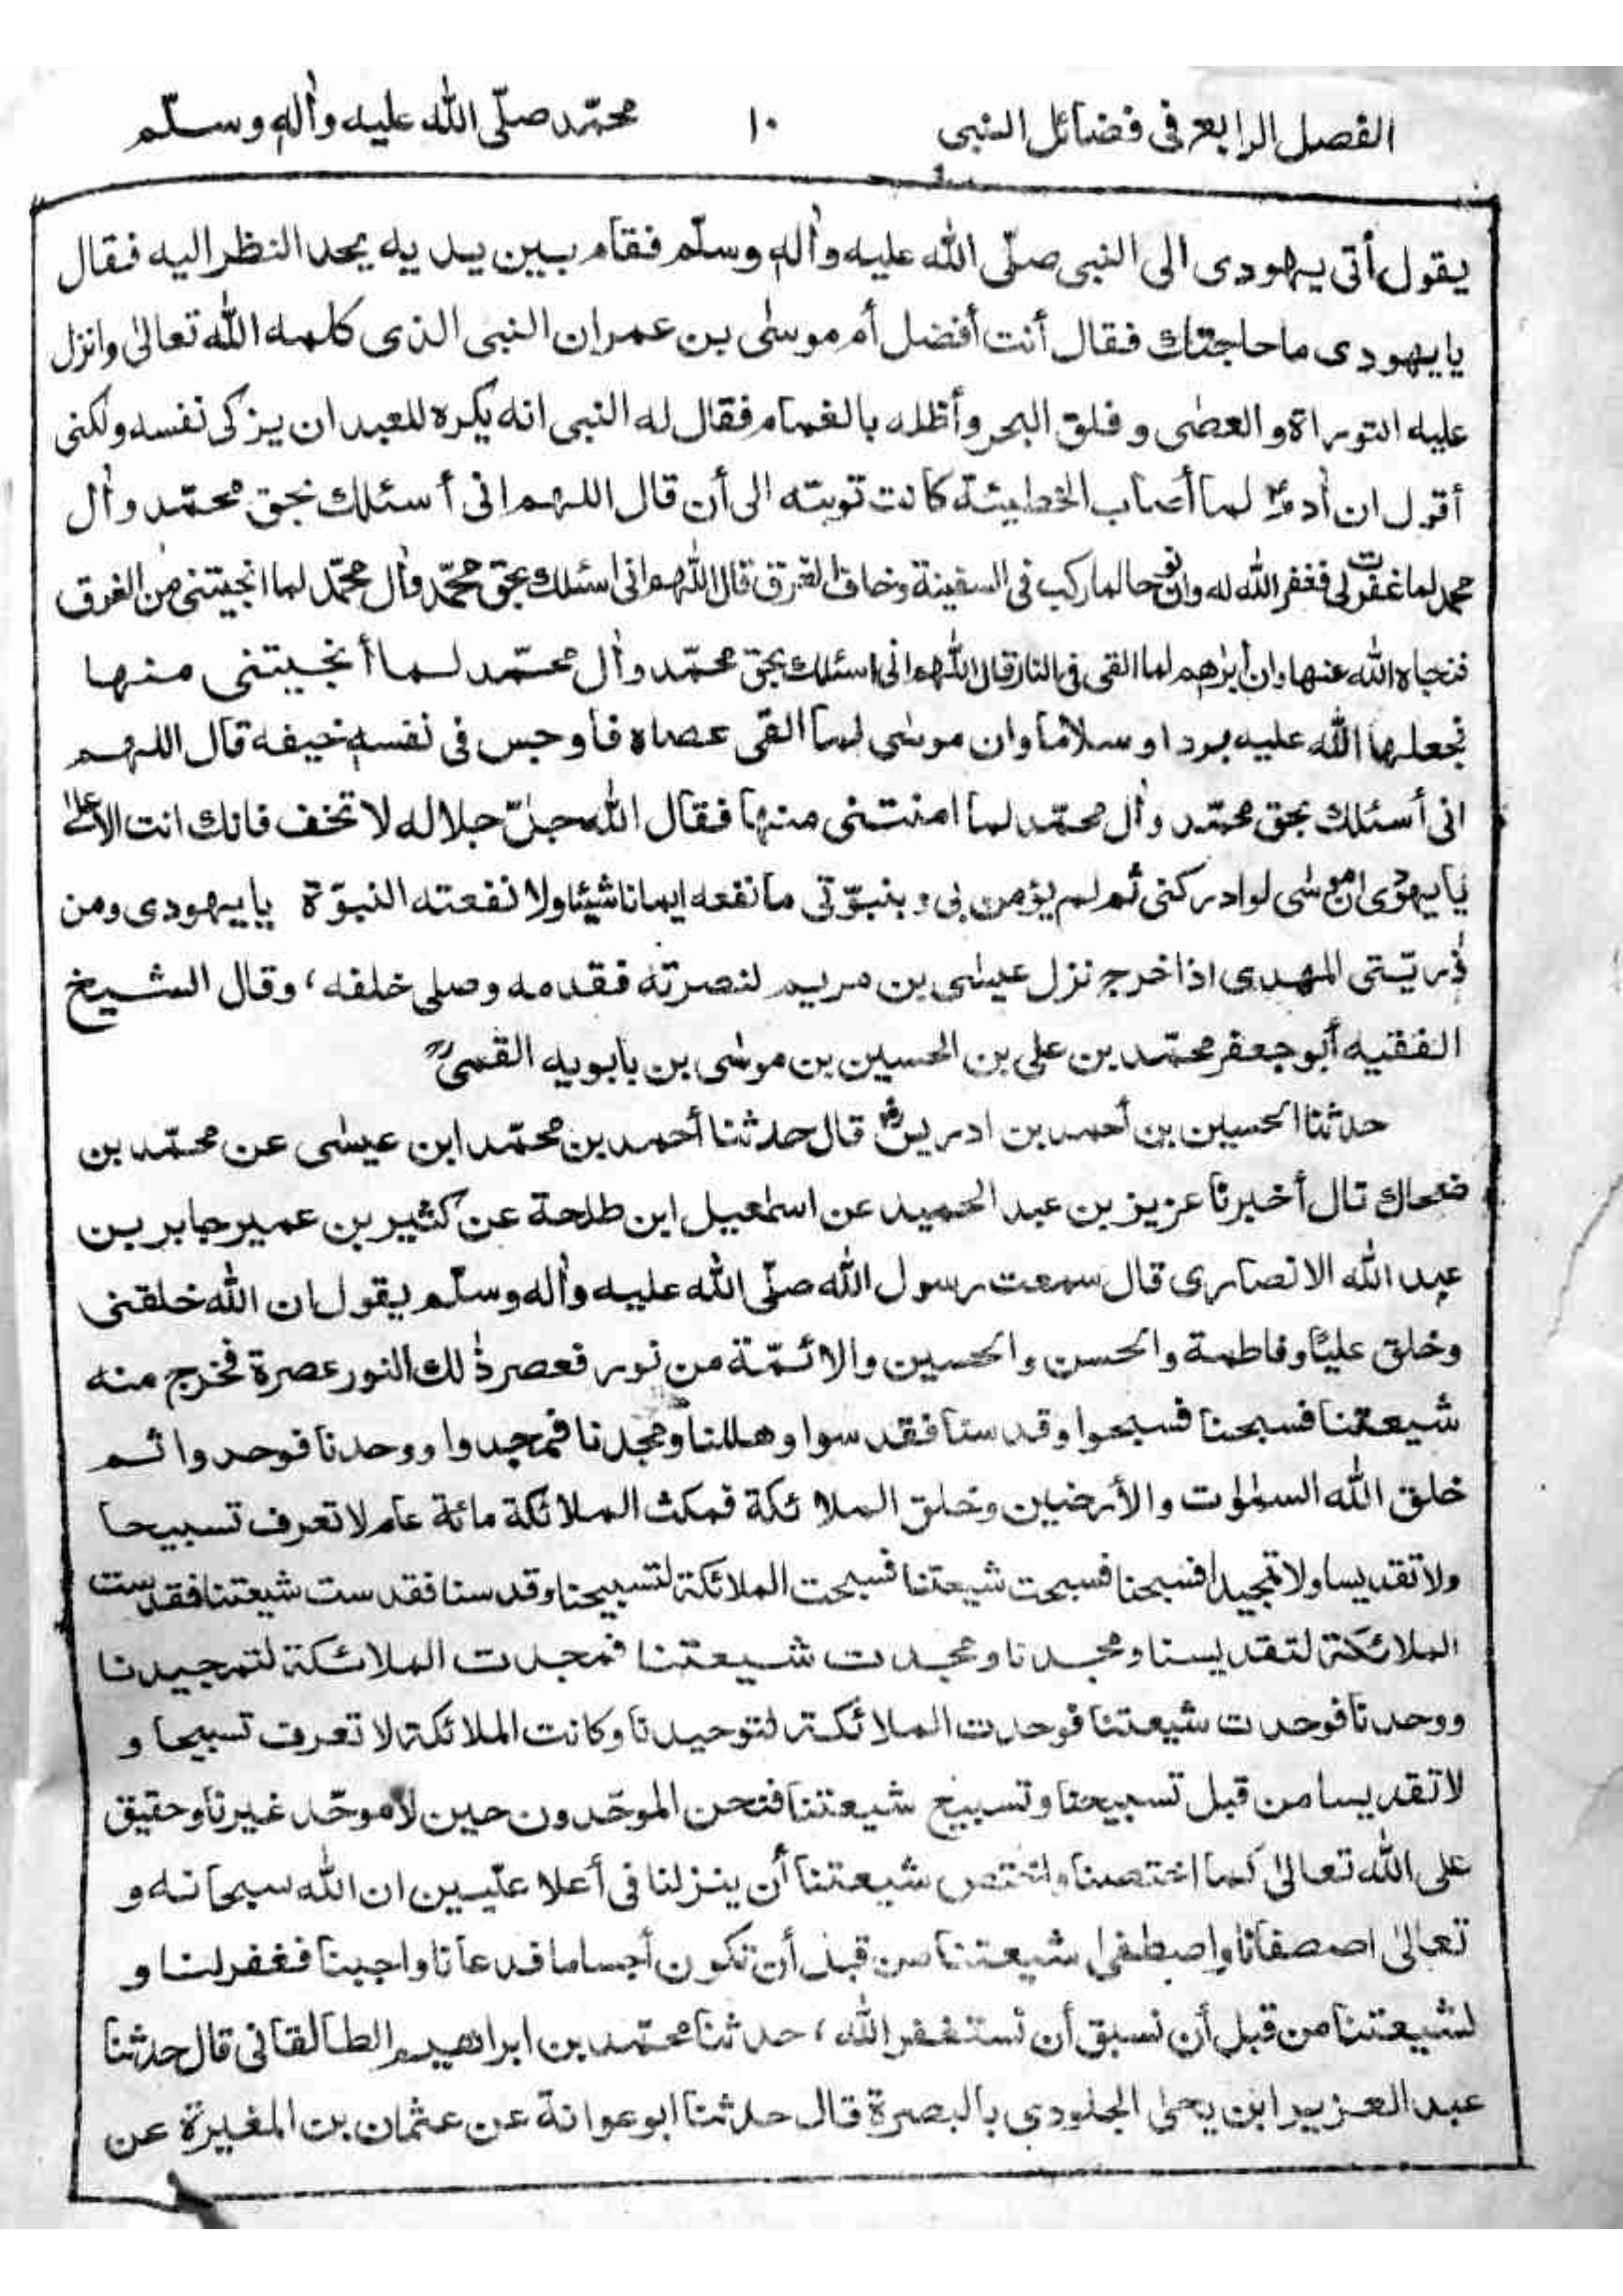 الفصل الرابع في فضائل النبى ١٠ محمّد صلّى الله عليه وآله وسلّم
يقول أتى يهودى الى النبى صلّى الله عليه وآله وسلّم فقام بين يديه يحد النظر اليه فقال
يا يهودى ما حاجتك فقال أنت أفضل أم موسٰى بن عمران النبى الذى كلمه الله تعالىٰ وانزل
عليه التوراة والعصٰى و فلق البحر وأظله بالغمام فقال له النبى انه يكره للعبد ان يزكى نفسه ولكنى
أقول ان آدمؑ لما أصاب الخطيئة كانت توبته الى أن قال اللهم انى أسئلك بحق محمّد وآل
محمد لما غفرت لى فغفر الله له وان نوحا لما ركب فى السفينة وخاف الغرق قال اللهم انى اسئلك بحق محمّد وآل محمّد لما انجيتنى من الغرق
فنجاه الله عنها وان ابرٰهيم لما القى فى النار قال اللهم انى اسئلك بحق محمّد وآل محمّد لما أنجيتنى منها
فجعلها الله عليه بردا وسلاما وان موسٰى لما القى عصاه فأوجس فى نفسه خيفه قال اللهم
انى أسئلك بحق محمّد وآل محمّد لما امنتنى منها فقال الله جلّ جلاله لا تخف فانك انت الأعلىٰ
يا يهودى ان موسٰى لو ادركنى ثم لم يؤمن بى و بنبوّتى ما نفعه ايمانا شيئا ولا نفعته النبوّة يا يهودى ومن
ذريّتى المهدى اذا خرج نزل عيسٰى بن مريم لنصرته فقدمه وصلى خلفه، وقال الشيخ
الفقيه أبو جعفر محمّد بن على بن الحسين بن موسٰى بن بابويه القمىؒ
حدثنا الحسين بن أحمد بن ادريسؓ قال حدثنا أحمد بن محمّد ابن عيسٰى عن محمّد بن
ضحاك قال أخبرنا عزيز بن عبد الحميد عن اسمٰعيل ابن طلحة عن كثير بن عمير جابر بن
عبد الله الانصارى قال سمعت رسول الله صلّى الله عليه وآله وسلّم يقول ان الله خلقنى
وخلق عليًا و فاطمة والحسن والحسين والائمّة من نور فعصر ذٰلك النور عصرة فخرج منه
شيعتنا فسبحنا فسبحوا وقدسنا فقدسوا وهللنا ومجدنا فمجدوا ووحدنا فوحدوا ثم
خلق الله السمٰوٰت والأرضين وخلق الملائكة فمكث الملائكة مائة عام لا تعرف تسبيحا
ولا تقديسا ولا تمجيدا فسبحنا فسبحت شيعتنا فسبحت الملائكة لتسبيحنا وقدسنا فقدست شيعتنا فقدست
الملائكة لتقديسنا ومجدنا ومجدت شيعتنا فمجدت الملائكة لتمجيدنا
ووحدنا فوحدت شيعتنا فوحدت الملائكة لتوحيدنا وكانت الملائكة لا تعرف تسبيحا و
لا تقديسا من قبل تسبيحنا وتسبيح شيعتنا فنحن الموحّدون حين لا موحّد غيرنا وحقيق
على الله تعالىٰ كما اختصنا واختص شيعتنا أن ينزلنا فى أعلا علّيين ان الله سبحانه و
تعالىٰ اصصفانا واصطفىٰ شيعتنا من قبل أن نكون أجساما فدعانا واجبنا فغفر لنا و
لشيعتنا من قبل أن نسبق أن نستغفر الله، حدثنا محمّد بن ابراهيم الطالقانى قال حدثنا
عبد العزيز ابن يحىٰ الجلودى بالبصرة قال حدثنا ابو عوانة عن عثمان بن المغيرة عن